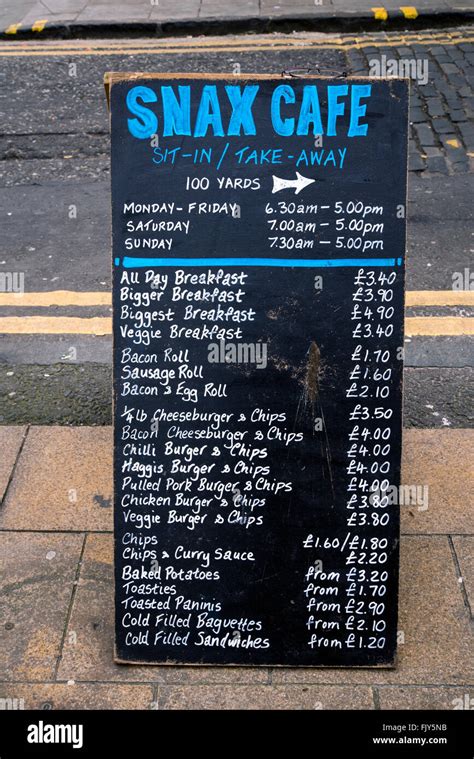 SNAX CAFE
SIT-IN / TAKE-AWAY
100 YARDS
MONDAY - FRIDAY 6.30am - 5.00pm
SATURDAY 7.00am - 5.00pm
SUNDAY 7.30am - 5.00pm
All Day Breakfast £3.40
Bigger Breakfast £3.90
Biggest Breakfast £4.90
Veggie Breakfast £3.40
Bacon Roll £1.70
Sausage Roll £1.60
Bacon & Egg Roll £2.10
1/4 lb Cheeseburger & Chips £3.50
Bacon Cheeseburger & Chips £4.00
Chilli Burger & Chips £4.00
Haggis Burger & Chips £4.00
Pulled Pork Burger & Chips £4.00
Chicken Burger & Chips £3.80
Veggie Burger & Chips £3.80
Chips £1.60/£1.80
Chips & Curry Sauce £2.20
Baked Potatoes from £3.20
Toasties from £1.70
Toasted Paninis from £2.90
Cold Filled Baguettes from £2.10
Cold Filled Sandwiches from £1.20
alamy
Image ID: FJY5NB
www.alamy.com